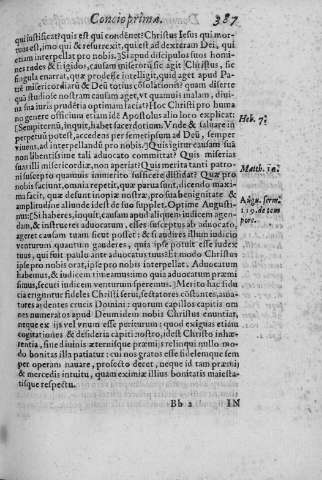 Concio prima. 387
qui iustificat: quis est qui condēnet? Christus Iesus qui mor-
tuus est, imo qui & resurrexit, qui est ad dexteram Dei, qui
etiam interpellat pro nobis.] Si apud discipulos suos homi-
nes rudes & frigidos, causam miserorū sic agit Christus, sic
singula enarrat, quæ prodesse intelligit, quid aget apud Pa-
trē misericordiarū & Deū totius cōsolationis? quàm diserte
quā studiose nostram causam aget, vt quamuis malam, divi-
na sua iuris prudētia optimam faciat? Hoc Christi pro huma
no genere officium etiam idē Apostolus alio loro explicat:
[Sempiternū, inquit, habet sacerdotiū. Vnde & saluare in
perpetuū potest, accedens per semetipsum ad Deū, semper
viuens, ad interpellandū pro nobis.] Quis igitur causam suā
non libentissime tali aduocato committat? Quis miserias
suas illi misericordiæ, non aperiat? Quis merita tanti patro-
ni suscepto quamuis immerito sufficere diffidat? Quæ pro
nobis faciunt, omnia repetit, quæ parua sunt, dicendo maxi-
ma facit, quæ desunt inopiæ nostræ, pro sua benignitate &
amplitudine aliunde idest de suo supplet. Optime Augusti-
nus: [Si haberes, inquit, causam apud aliquem iudicem agen-
dam, & instrueres aduocatum, esses susceptus ab aduocato,
ageret causam tuam sicut posset: & si audires illum iudicem
venturum quantum gauderes, quia ipse potuit esse iudex
tuus, qui fuit paulo ante aduocatus tuus? Et modo Christus
ipse pro nobis orat, ipse pro nobis interpellat. Aduocatum
habemus, & iudicem timeamus: imo quia aduocatum præmi-
simus, securi iudicem venturum speremus.] Merito hac fidu
cia eriguntur fideles Christi serui, sectatores constantes, ama-
tores ardentes crucis Domini: quorum capillos capitis om
nes numeratos apud Deum idem nobis Christus enuntiat,
neque ex ijs vel vnum esse periturum: quod exiguas etiam
cogitationes & desideria capiti nostro, idest Christo inhæ-
rentia, sine diuinis æternisque præmijs relinqui nullo mo-
do bonitas illa patiatur: cui nos gratos esse fidelemque sem
per operam nauare, profecto decet, neque id tam præmij
& mercedis intuitu, quam eximiæ illius bonitatis maiesta-
tisque respectu.
Heb. 7.
Matth. 10.
Augu. serm.
119. de tem
por.
Bb 2 IN